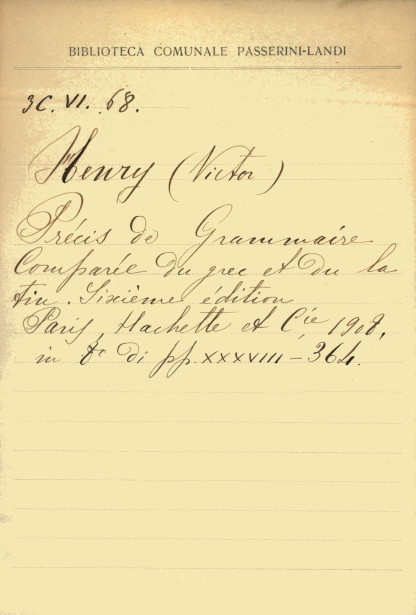 BIBLIOTECA COMUNALE PASSERINI-LANDI
3C. VI. 68.
Henry (Victor)
Précis de Grammaire
Comparée du grec et du la
tin. Sixième édition
Paris, Hachette et C.ie, 1908,
in 8° di pp. XXXVIII-364.